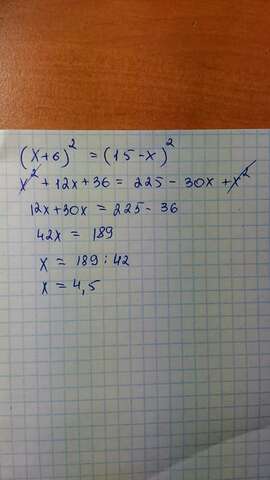 (x+6)² = (15-x)²
x² + 12x + 36 = 225 - 30x + x²
12x + 30x = 225 - 36
42x = 189
x = 189 : 42
x = 4,5